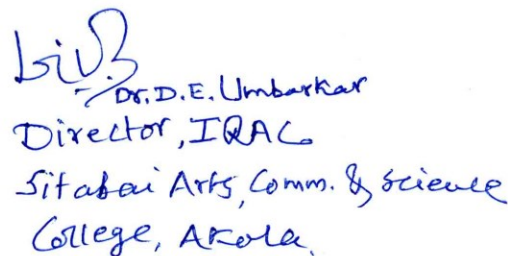 Dr. D.E. Umbarkar
Director, IQAC
Sitabai Arts, Comm. & Science
College, Akola.